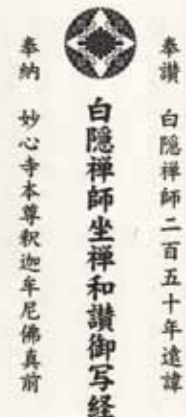 奉讃　白隠禅師二百五十年遠諱
白隠禅師坐禅和讃御写経
奉納　妙心寺本尊釈迦牟尼佛真前